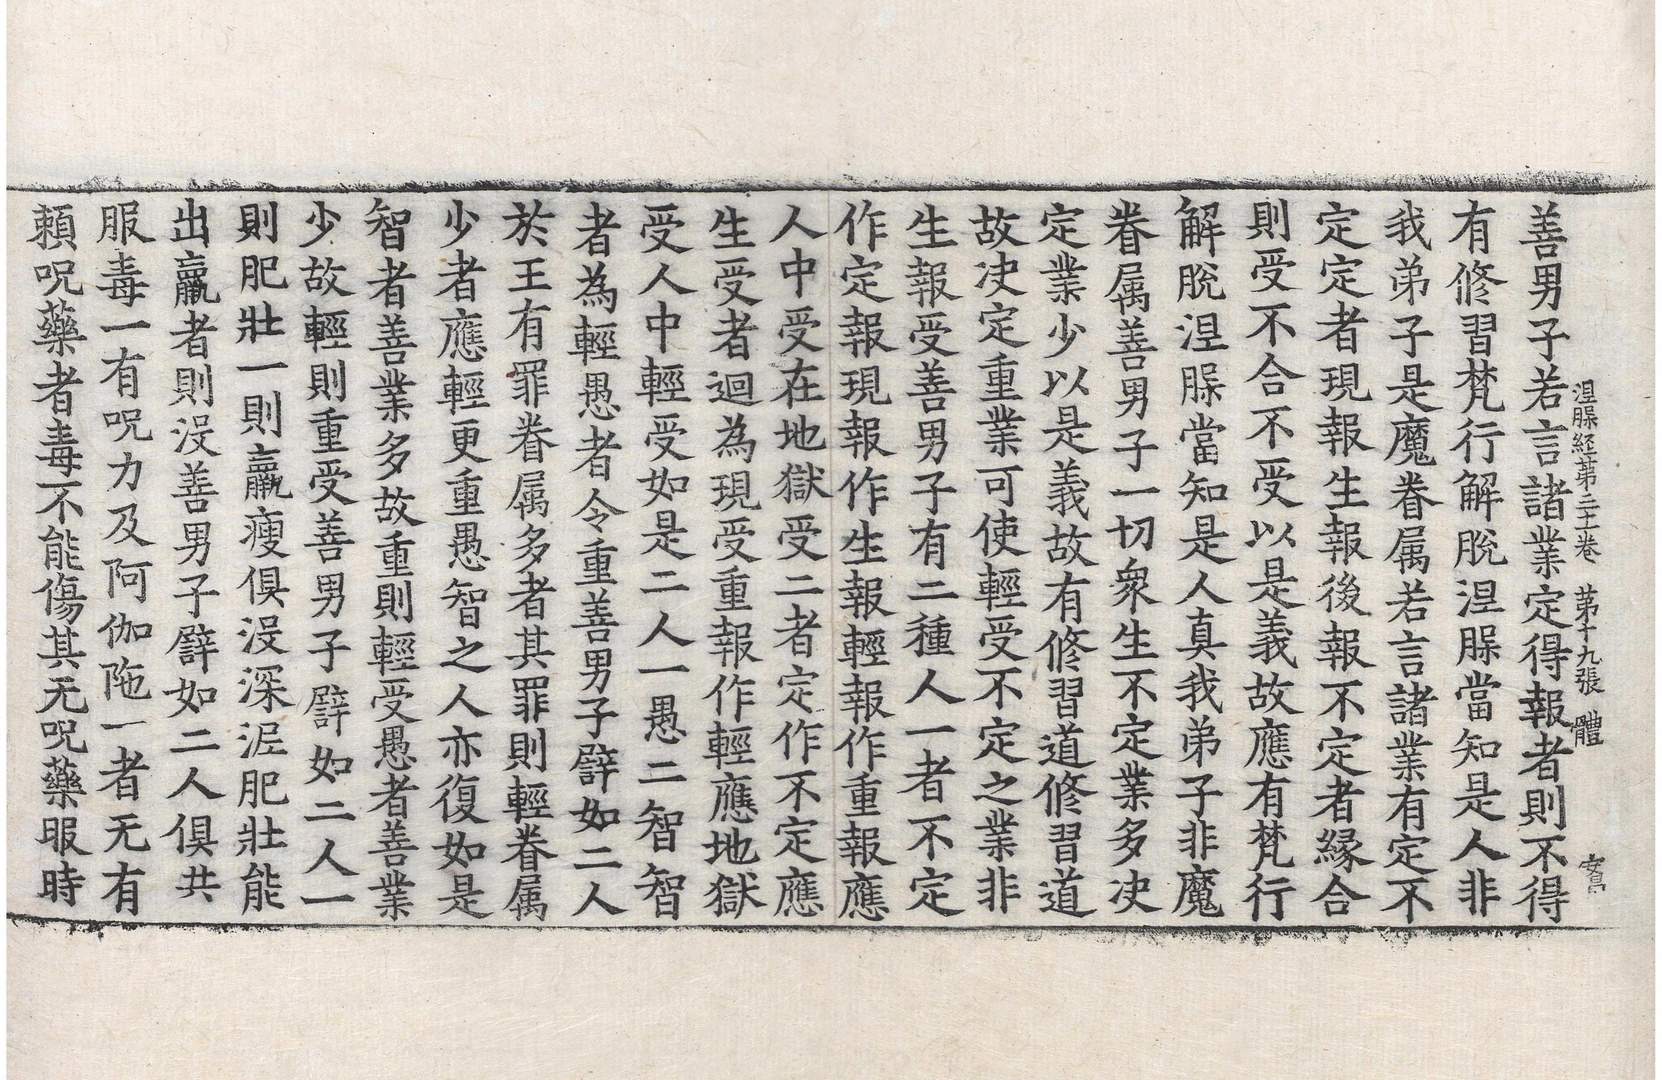 涅槃経第三十一卷 第十九張 體
善男子若言諸業定得報者則不得
有修習梵行解脫涅槃當知是人非
我弟子是魔眷属若言諸業有定不
定定者現報生報後報不定者縁合
則受不合不受以是義故應有梵行
解脫涅槃當知是人真我弟子非魔
眷属善男子一切衆生不定業多决
定業少以是義故有修習道修習道
故决定重業可使輕受不定之業非
生報受善男子有二種人一者不定
作定報現報作生報輕報作重報應
人中受在地獄受二者定作不定應
生受者迴為現受重報作輕應地獄
受人中輕受如是二人一愚二智智
者為輕愚者令重善男子譬如二人
於王有罪眷属多者其罪則輕眷属
少者應輕更重愚智之人亦復如是
智者善業多故重則輕受愚者善業
少故輕則重受善男子譬如二人一
則肥壯一則羸瘦俱没深泥肥壯能
出羸者則没善男子譬如二人俱共
服毒一有呪力及阿伽陁一者无有
頼呪藥者毒不能傷其无呪藥服時